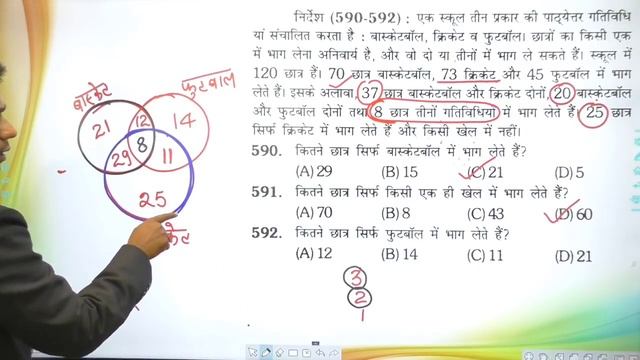 निर्देश (590-592) : एक स्कूल तीन प्रकार की पाठ्येत्तर गतिविधि
यां संचालित करता है : बास्केटबॉल, क्रिकेट व फुटबॉल। छात्रों का किसी एक
में भाग लेना अनिवार्य है, और वो दो या तीनों में भाग ले सकते हैं। स्कूल में
120 छात्र हैं। 70 छात्र बास्केटबॉल, 73 क्रिकेट और 45 फुटबॉल में भाग
लेते हैं। इसके अलावा, 37 छात्र बास्केटबॉल और क्रिकेट दोनों, 20 बास्केटबॉल
और फुटबॉल दोनों तथा 8 छात्र तीनों गतिविधियों में भाग लेते हैं। 25 छात्र
सिर्फ क्रिकेट में भाग लेते हैं और किसी खेल में नहीं।
590. कितने छात्र सिर्फ बास्केटबॉल में भाग लेते हैं?
(A) 29 (B) 15 (C) 21 (D) 5
591. कितने छात्र सिर्फ किसी एक ही खेल में भाग लेते हैं?
(A) 70 (B) 8 (C) 43 (D) 60
592. कितने छात्र सिर्फ फुटबॉल में भाग लेते हैं?
(A) 12 (B) 14 (C) 11 (D) 21
बास्केट
फुटबाल
21 12 14
8
29 11
25
3
2
1